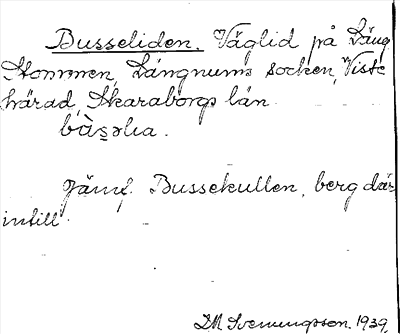 Busseliden. Väglid på Läng
Hommen, Längnums socken, Viste
härad, Skaraborgs län.
bùs̱əlia.
Jämf. Bussekullen, berg där-
intill.
DM Svenungsson. 1939.